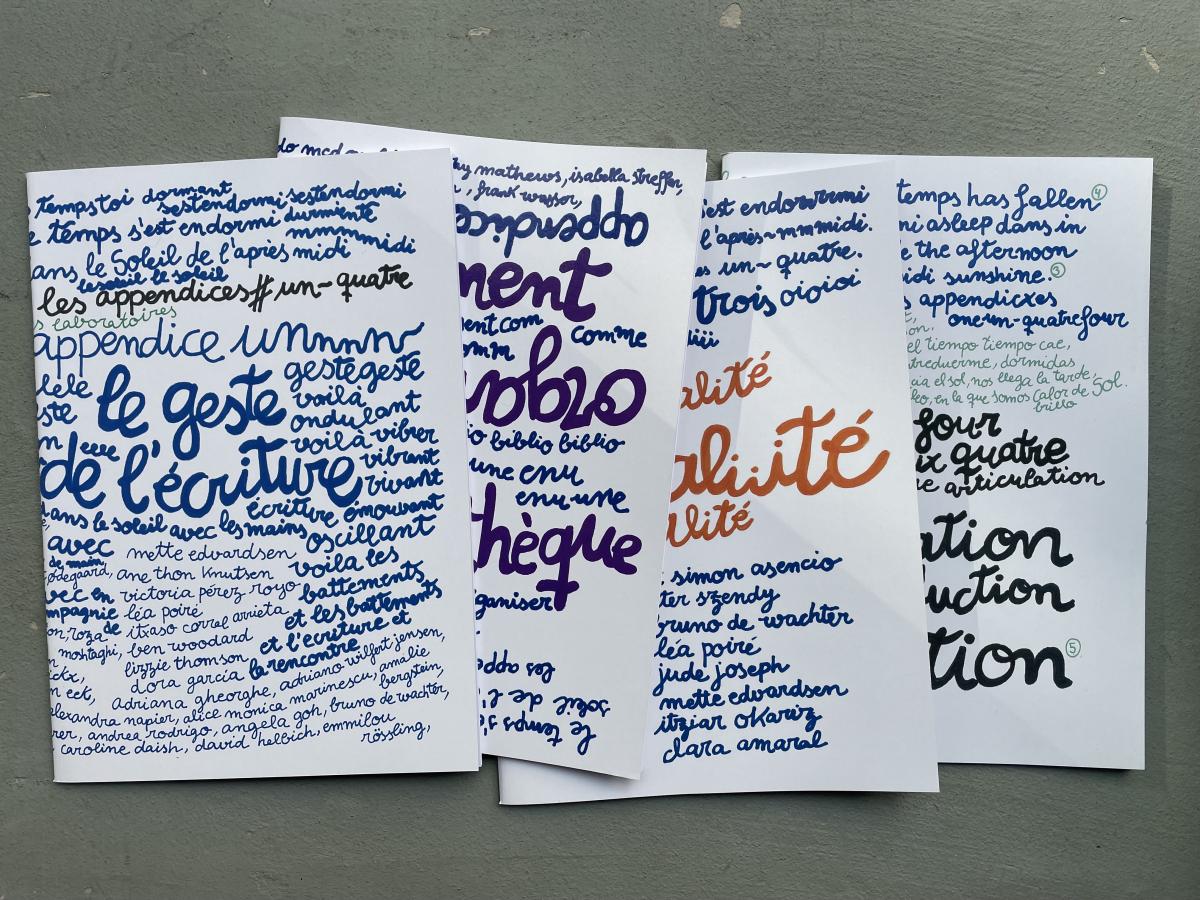 temps toi dormant
sestendormi sestendormi
temps s'est endormi durmiente
mmmmidi
ans le Soleil de l'après midi
le soleil le soleil
les appendices # un-quatre
laboratoires
appendice unnnnn
gestegeste
le geste
voilà
ondulant
voilà vibrer
de l'écriture
vibrent
vivant
écriture émouvant
dans le soleil avec les mains oscillant
avec
de main
mette edvardsen
voila les
ødegaard, ane thon knutsen
battements
avec en victoria pérez royo
et les battements
léa poiré
et l'écriture et
roza de itxaso corral arrieta
la rencontre
moshtaghi, ben woodard
lizzie thomson
dora garcía
adriana gheorghe, adriano wilfert jensen,
alexandra napier, alice monica marinescu, amalie
bergstein,
andrea rodrigo, angela goh, bruno de wachter,
caroline daish, david helbich, emmilou
rössling,
mathews, isabella streffen,
appendice
ment
ent com comme
omm
ologra
biblio biblio
une enu
enu-une
thèque
ganiser
le temps s'
soleil de l'
les appe
est endorrrmi
l'après-mmmidi.
un-quatre.
trois oioioi
iiii
alité
ali..ité
alité
simon asencio
ter szendy
bruno de wachter
léa poiré
jude joseph
mette edvardsen
itziar okariz
clara amaral
temps has fallen 4
asleep dans in
the afternoon
idi sunshine. 3
appendicxes
one un-quatre four
el tiempo tiempo cae,
treduerme, dormidas
cia el sol, nos llega la tarde,
leo, en le que somos calor de Sol.
brillo
four
ix quatre
articulation
ation
uction
tion 5